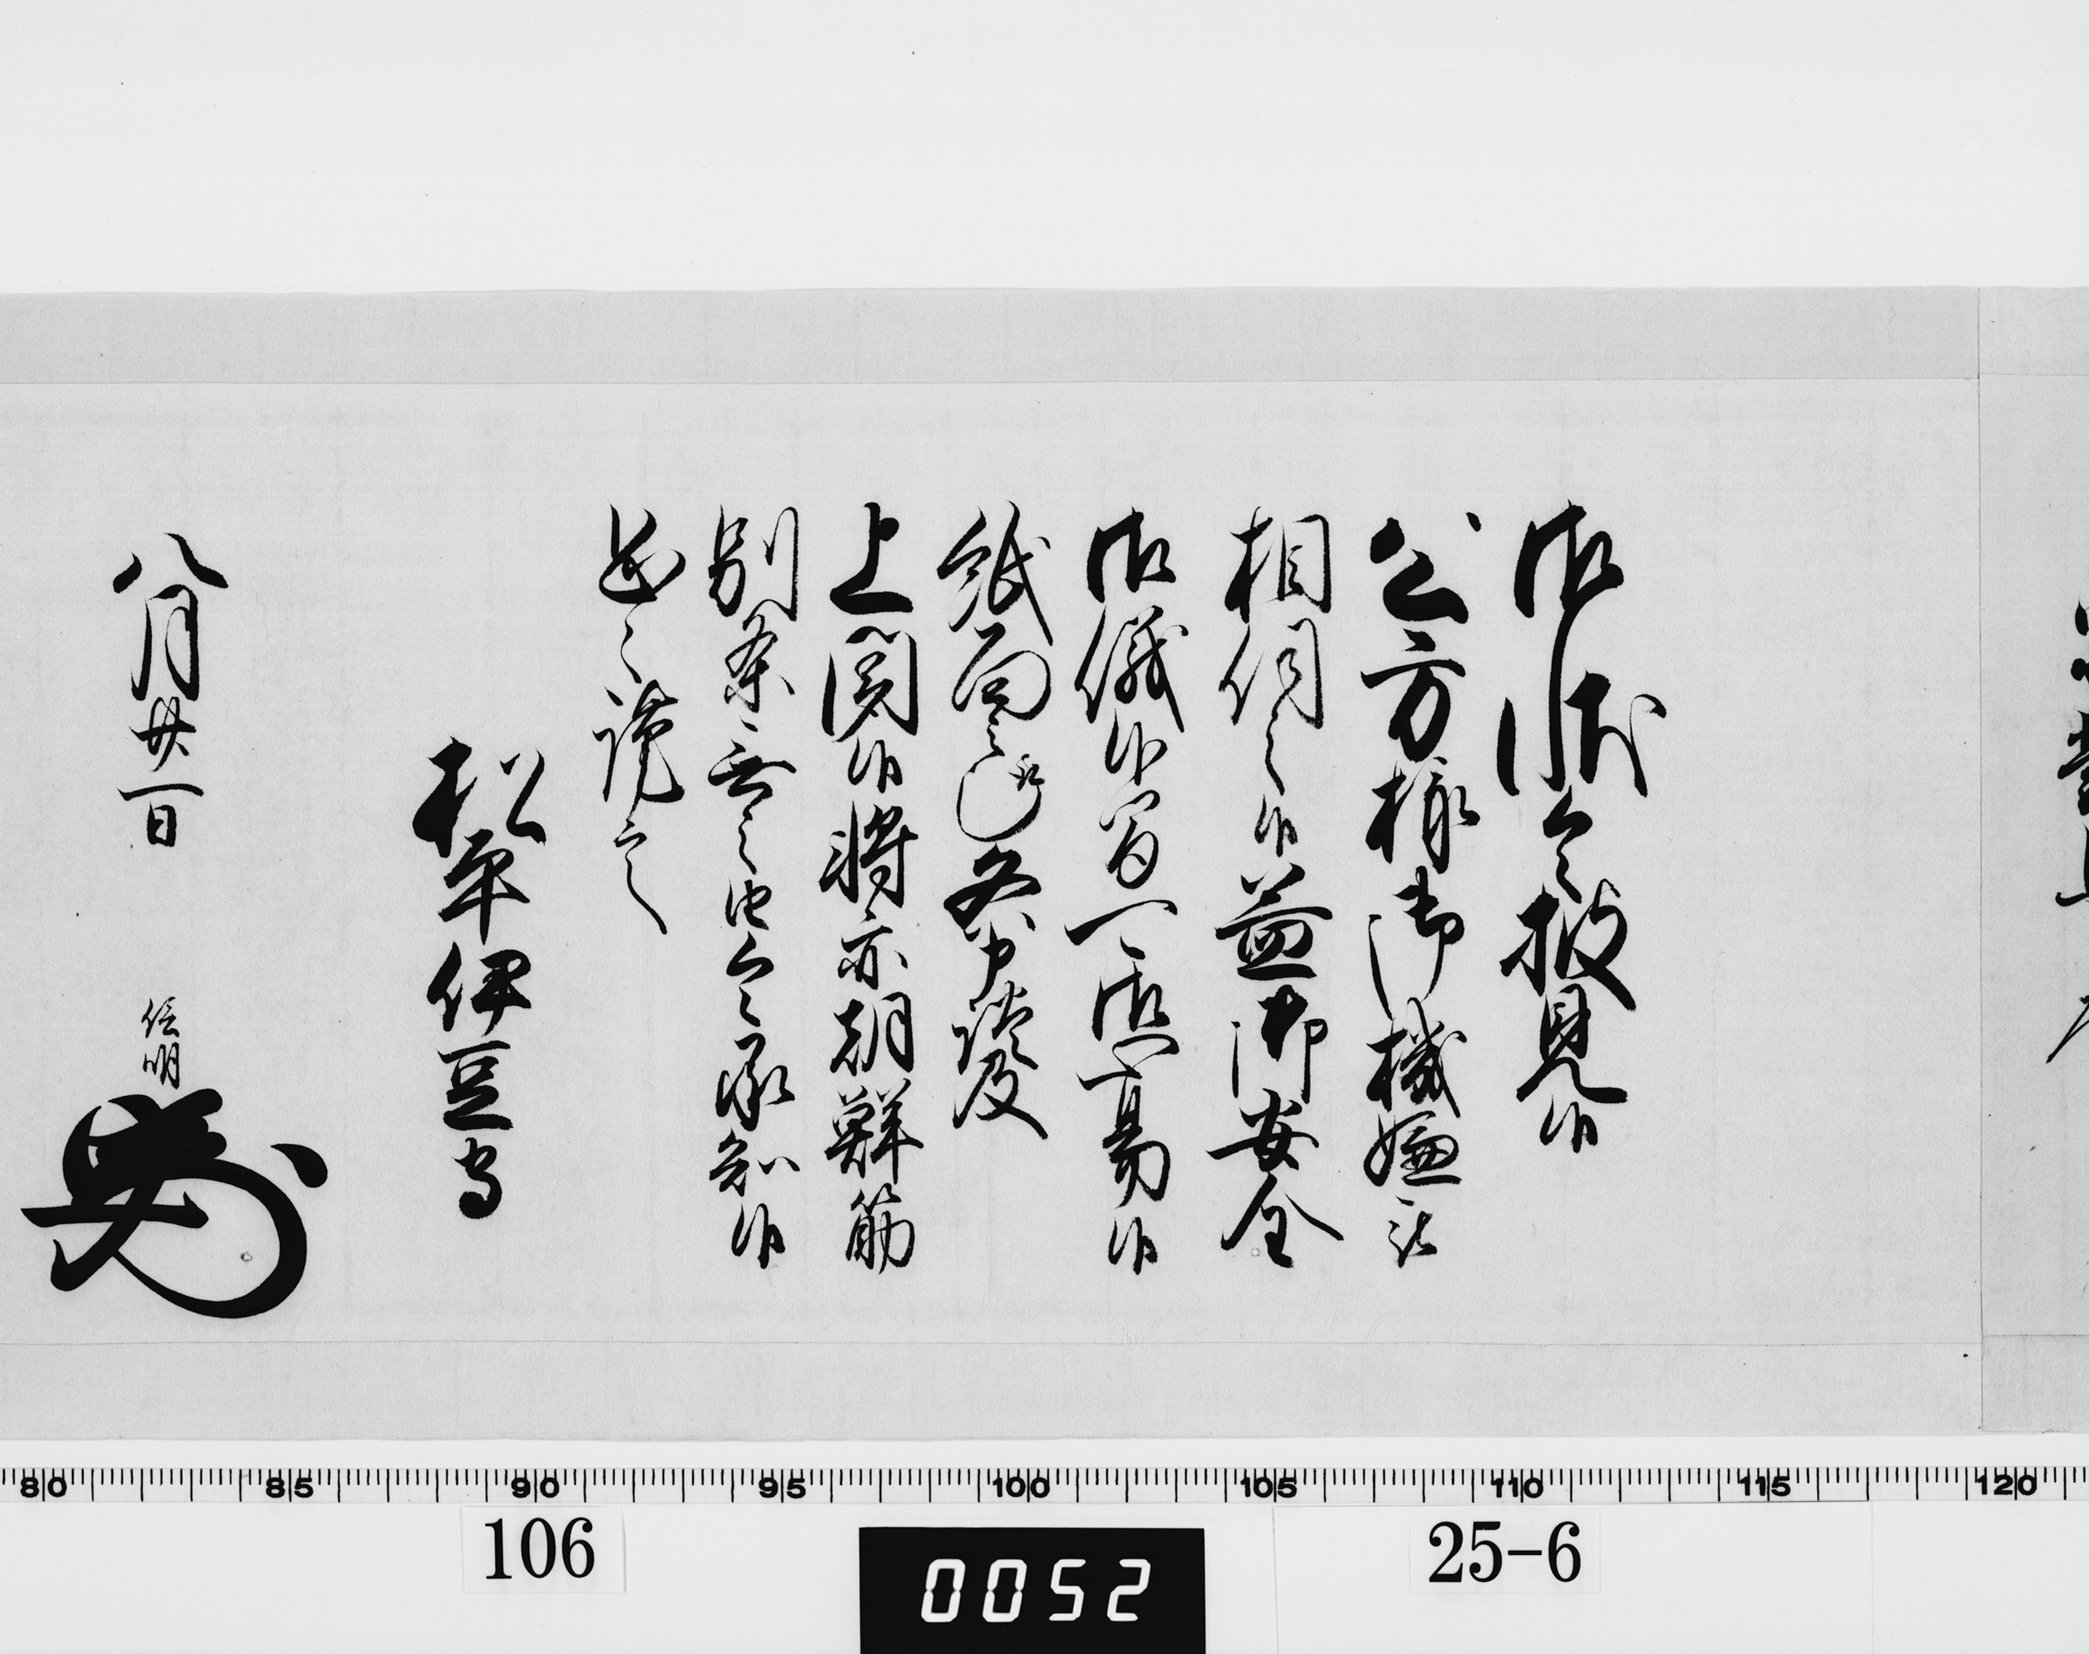 御状令披見候
公方様御機嫌之
相伺之候益御安全
御儀候間可御心易候
紙面之趣各申談及
上聞候将亦朝鮮筋
別条無之由令承知候
恐々謹言
松平伊豆守
八月廿一日
信明
106
0052
25-6
80 85 90 95 100 105 110 115 120